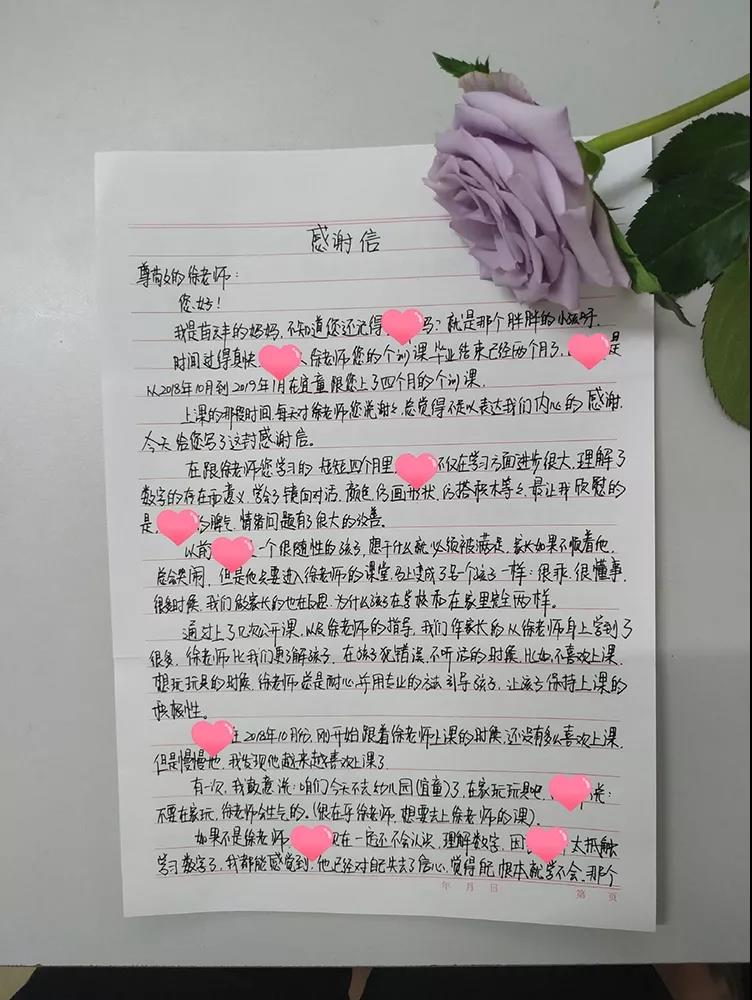 感谢信
尊敬的徐老师:
您好!
我是 的妈妈,不知道您还记得 吗?就是那个胖胖的小孩呀.
时间过得真快 徐老师您的个训课毕业结束已经两个月了, 是
从2018年10月到2019年1月在宜童跟您上了四个月的个训课.
上课的那段时间,每天对徐老师您说谢々,总觉得不足以表达我们内心的感谢.
今天给您写了这封感谢信。
在跟徐老师您学习的短短四个月里 不仅在学习方面进步很大,理解了
数字的存在而意义,学会了镜向对话,颜色,仿画形状,仿搭积木等々,最让我欣慰的
是 脾气,情绪问题有了很大的改善。
以前 一个很随性的孩子,想干什么就必须被满足,家长如果不顺着他,
总会哭闹,但是他只要进入徐老师的课堂,马上变成了另一个孩子一样:很乖,很懂事,
很多时候,我们做家长的也在反思,为什么孩子在学校和在家里完全两样。
通过上了几次公开课,以及徐老师的指导,我们作家长的从徐老师身上学到了
很多,徐老师比我们更了解孩子,在孩子犯错误,不听话的时候,比如不喜欢上课,
想玩玩具的时候,徐老师总是耐心,并用专业的方法引导孩子,让孩子保持上课的
积极性。
在2018年10月份,刚开始跟着徐老师上课的时候,还没有多么喜欢上课,
但是慢慢地,我发现他越来越喜欢上课了.
有一次,我故意说:咱们今天不去幼儿园(宜童)了,在家玩玩具吧, 说:
不要在家玩,徐老师会生气的.(很在乎徐老师,想要去上徐老师的课).
如果不是徐老师 现在一定还不会认识,理解数字,因 太抵触
学习数字了,我都能感觉到,他已经对自己失去了信心,觉得自己根本就学不会,那个
年 月 日 第 页